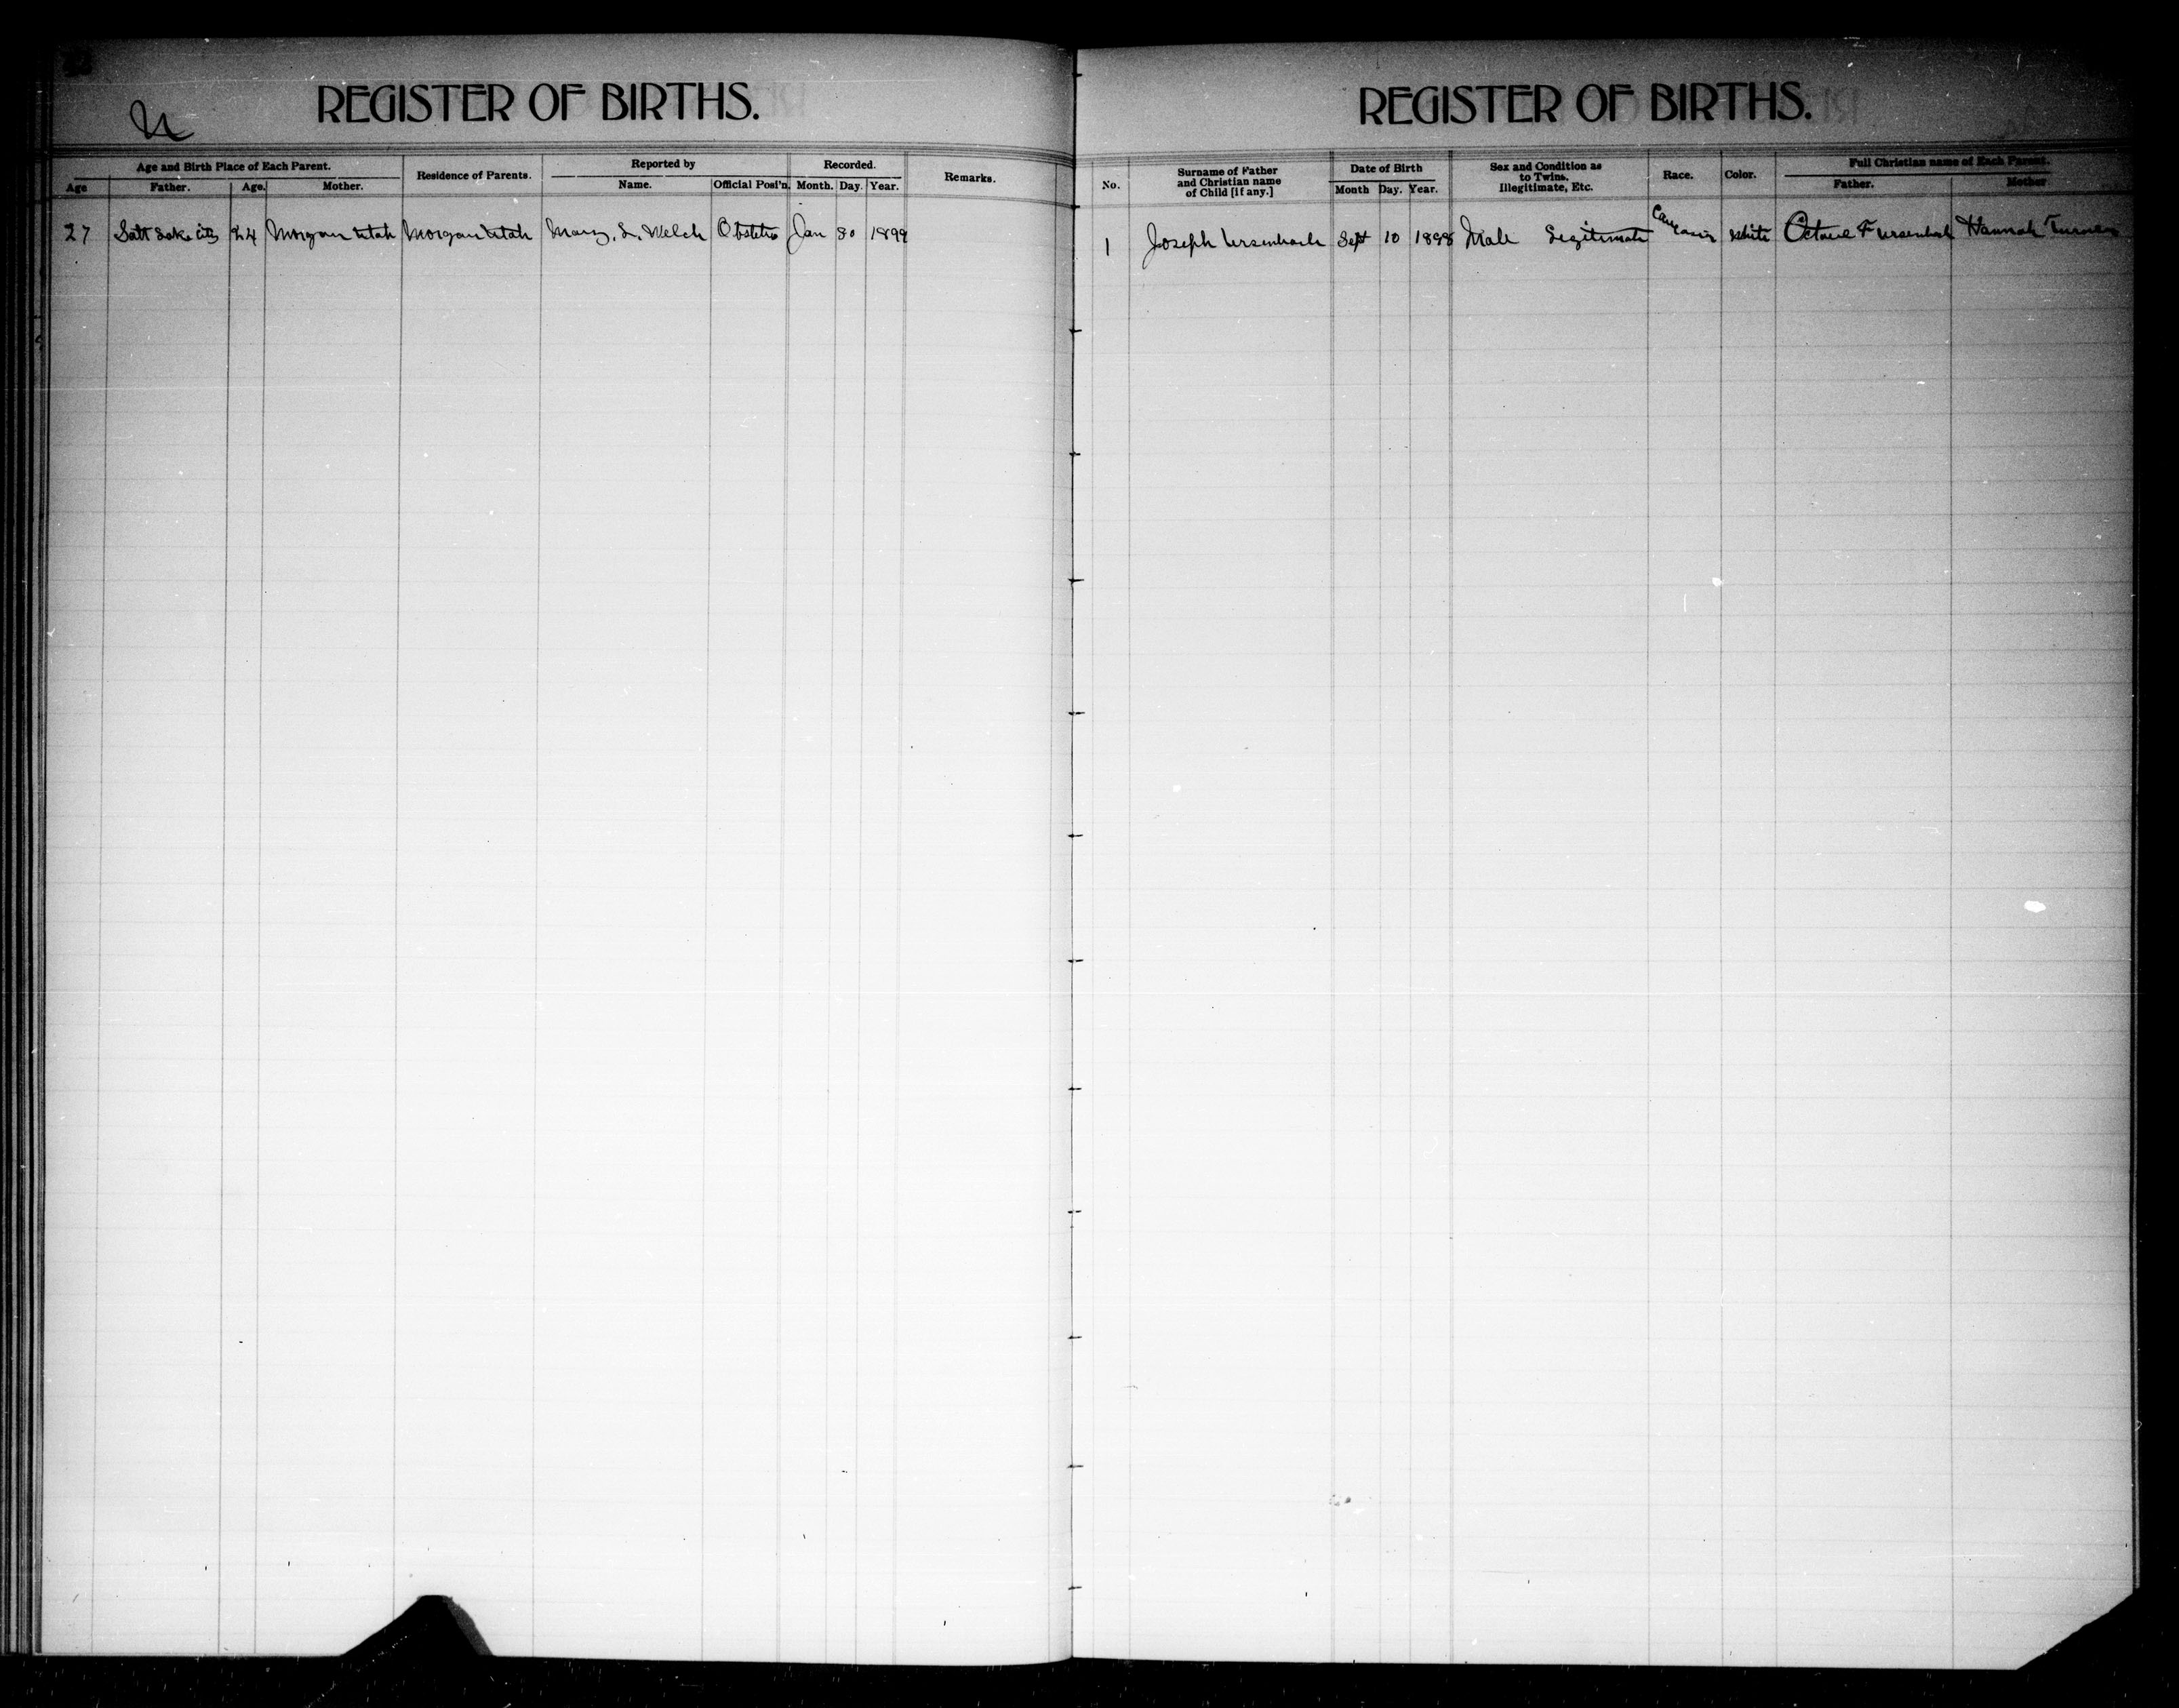 U
REGISTER OF BIRTHS.
Age and Birth Place of Each Parent. Residence of Parents. Reported by Recorded. Remarks.
Age Father. Age. Mother. Name. Official Posi'n. Month. Day. Year.
27 Salt Lake City 24 Morgan Utah Morgan Utah Mary. L. Welch Obstetrix Jan 30 1899
REGISTER OF BIRTHS.
No. Surname of Father and Christian name of Child [if any.] Date of Birth Sex and Condition as to Twins, Illegitimate, Etc. Race. Color. Full Christian name of Each Parent.
Month Day. Year. Father. Mother
1 Joseph Ursenbach Sept 10 1898 Male Legitimate Caucasin white Octave F Ursenbach Hannah Turner